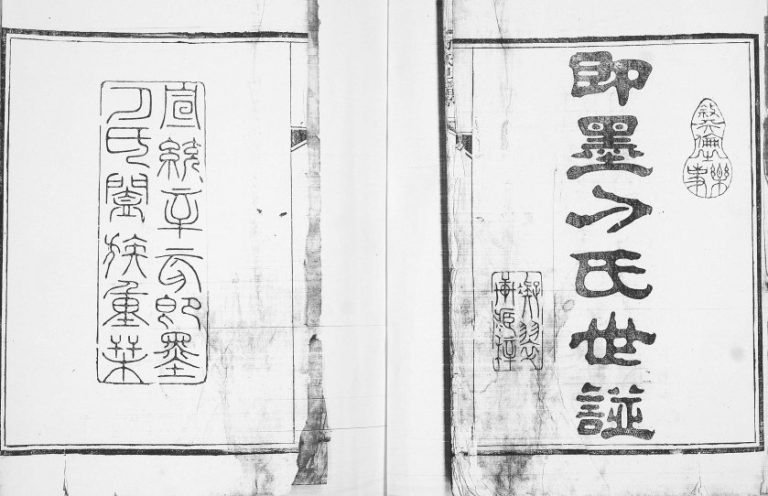 即墨刁氏世譜
宣統辛亥即墨
刁氏闔族重栞